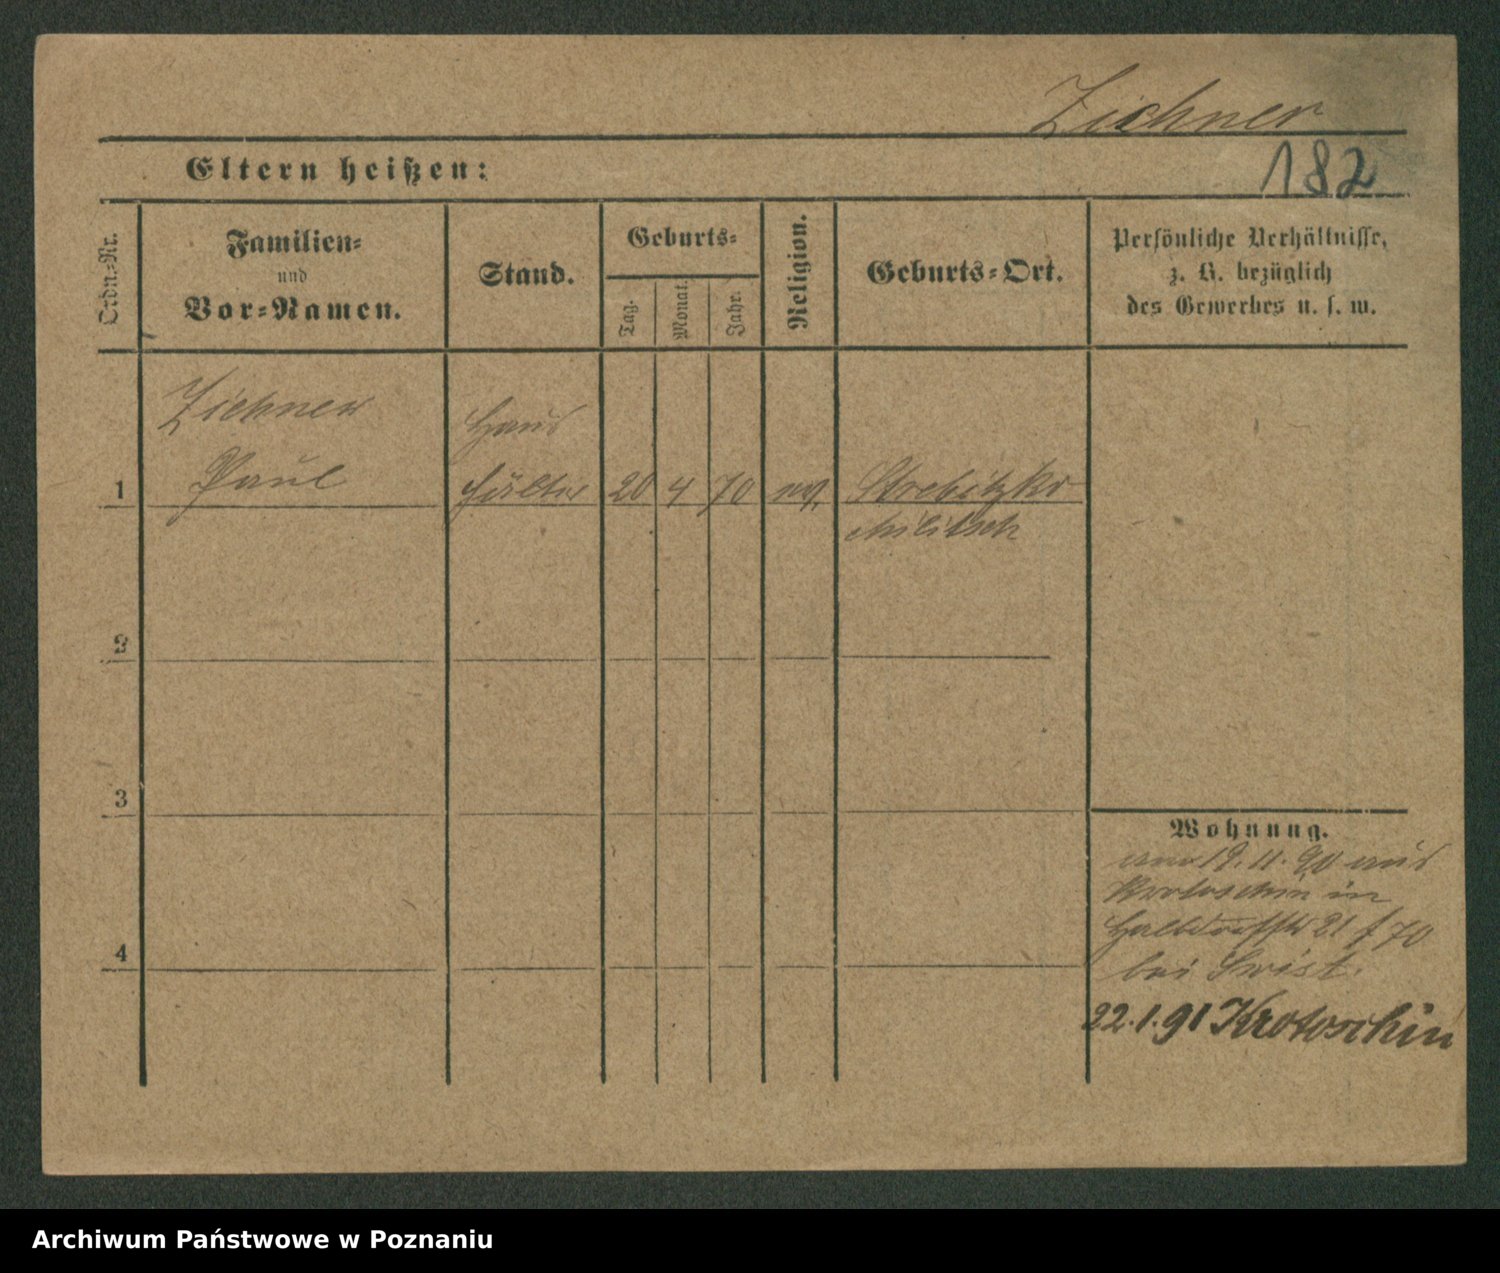 Zichner
Eltern heißen:
182
Ordn.-Nr.
Familien-
und
Vor-Namen.
Stand.
Geburts-
Tag.
Monat.
Jahr.
Religion.
Geburts-Ort.
Persönliche Verhältnisse,
z. B. bezüglich
des Gewerbes u. s. w.
Zichner
Haus
1
Paul
hälter
20
4
70
ev.
Strebitzko
Militsch
2
3
4
Wohnung.
am 19. 11. 90 aus
Krotoschin in
Halbdorfstr 21 f 70
bei Swist.
22.1.91 Krotoschin
Archiwum Państwowe w Poznaniu